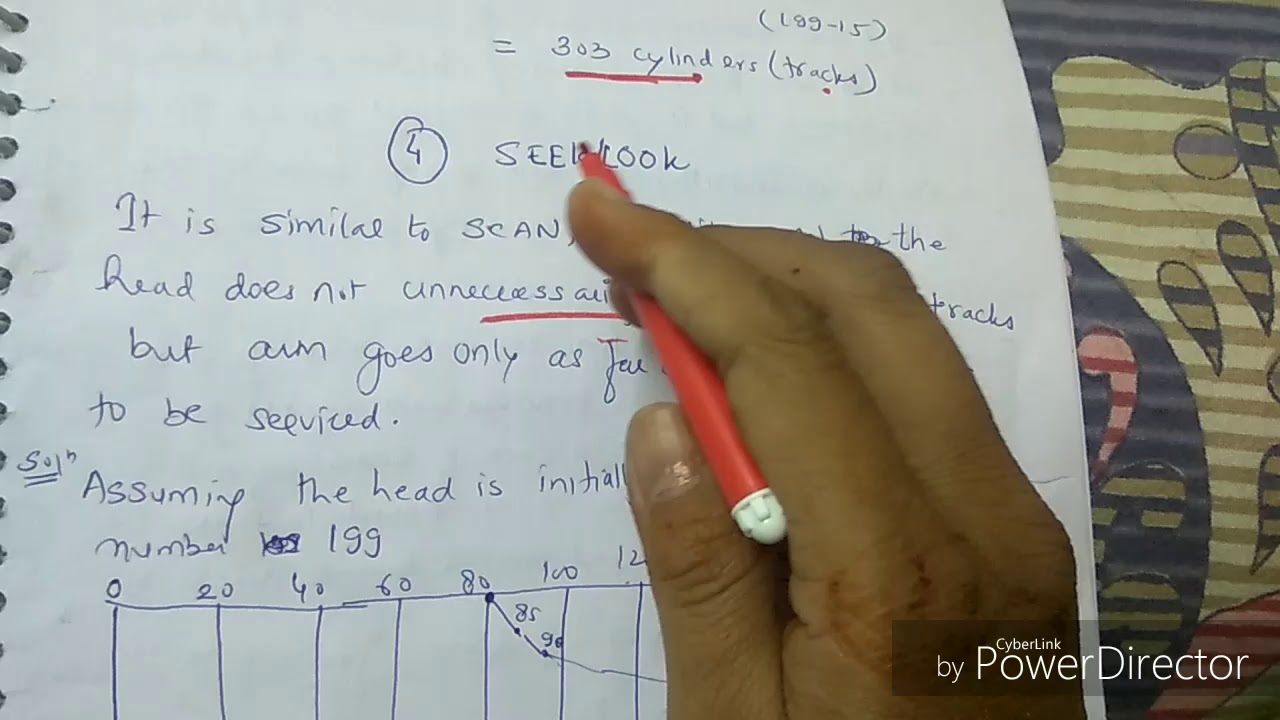 (199-15)
= 303 cylinders (tracks)
4 SEEK LOOK
It is similar to SCAN, the
head does not tracks
but arm goes only as far
to be serviced.
Soln Assuming the head is
number 199
0 20 40 60 80 100
85
90
CyberLink
by PowerDirector